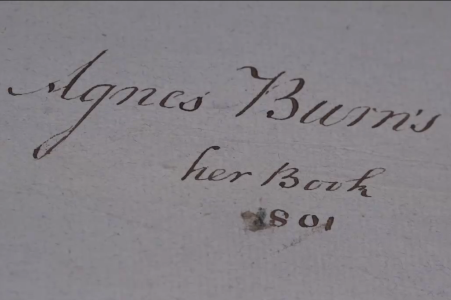 Agnes Burn's
her Book
1801